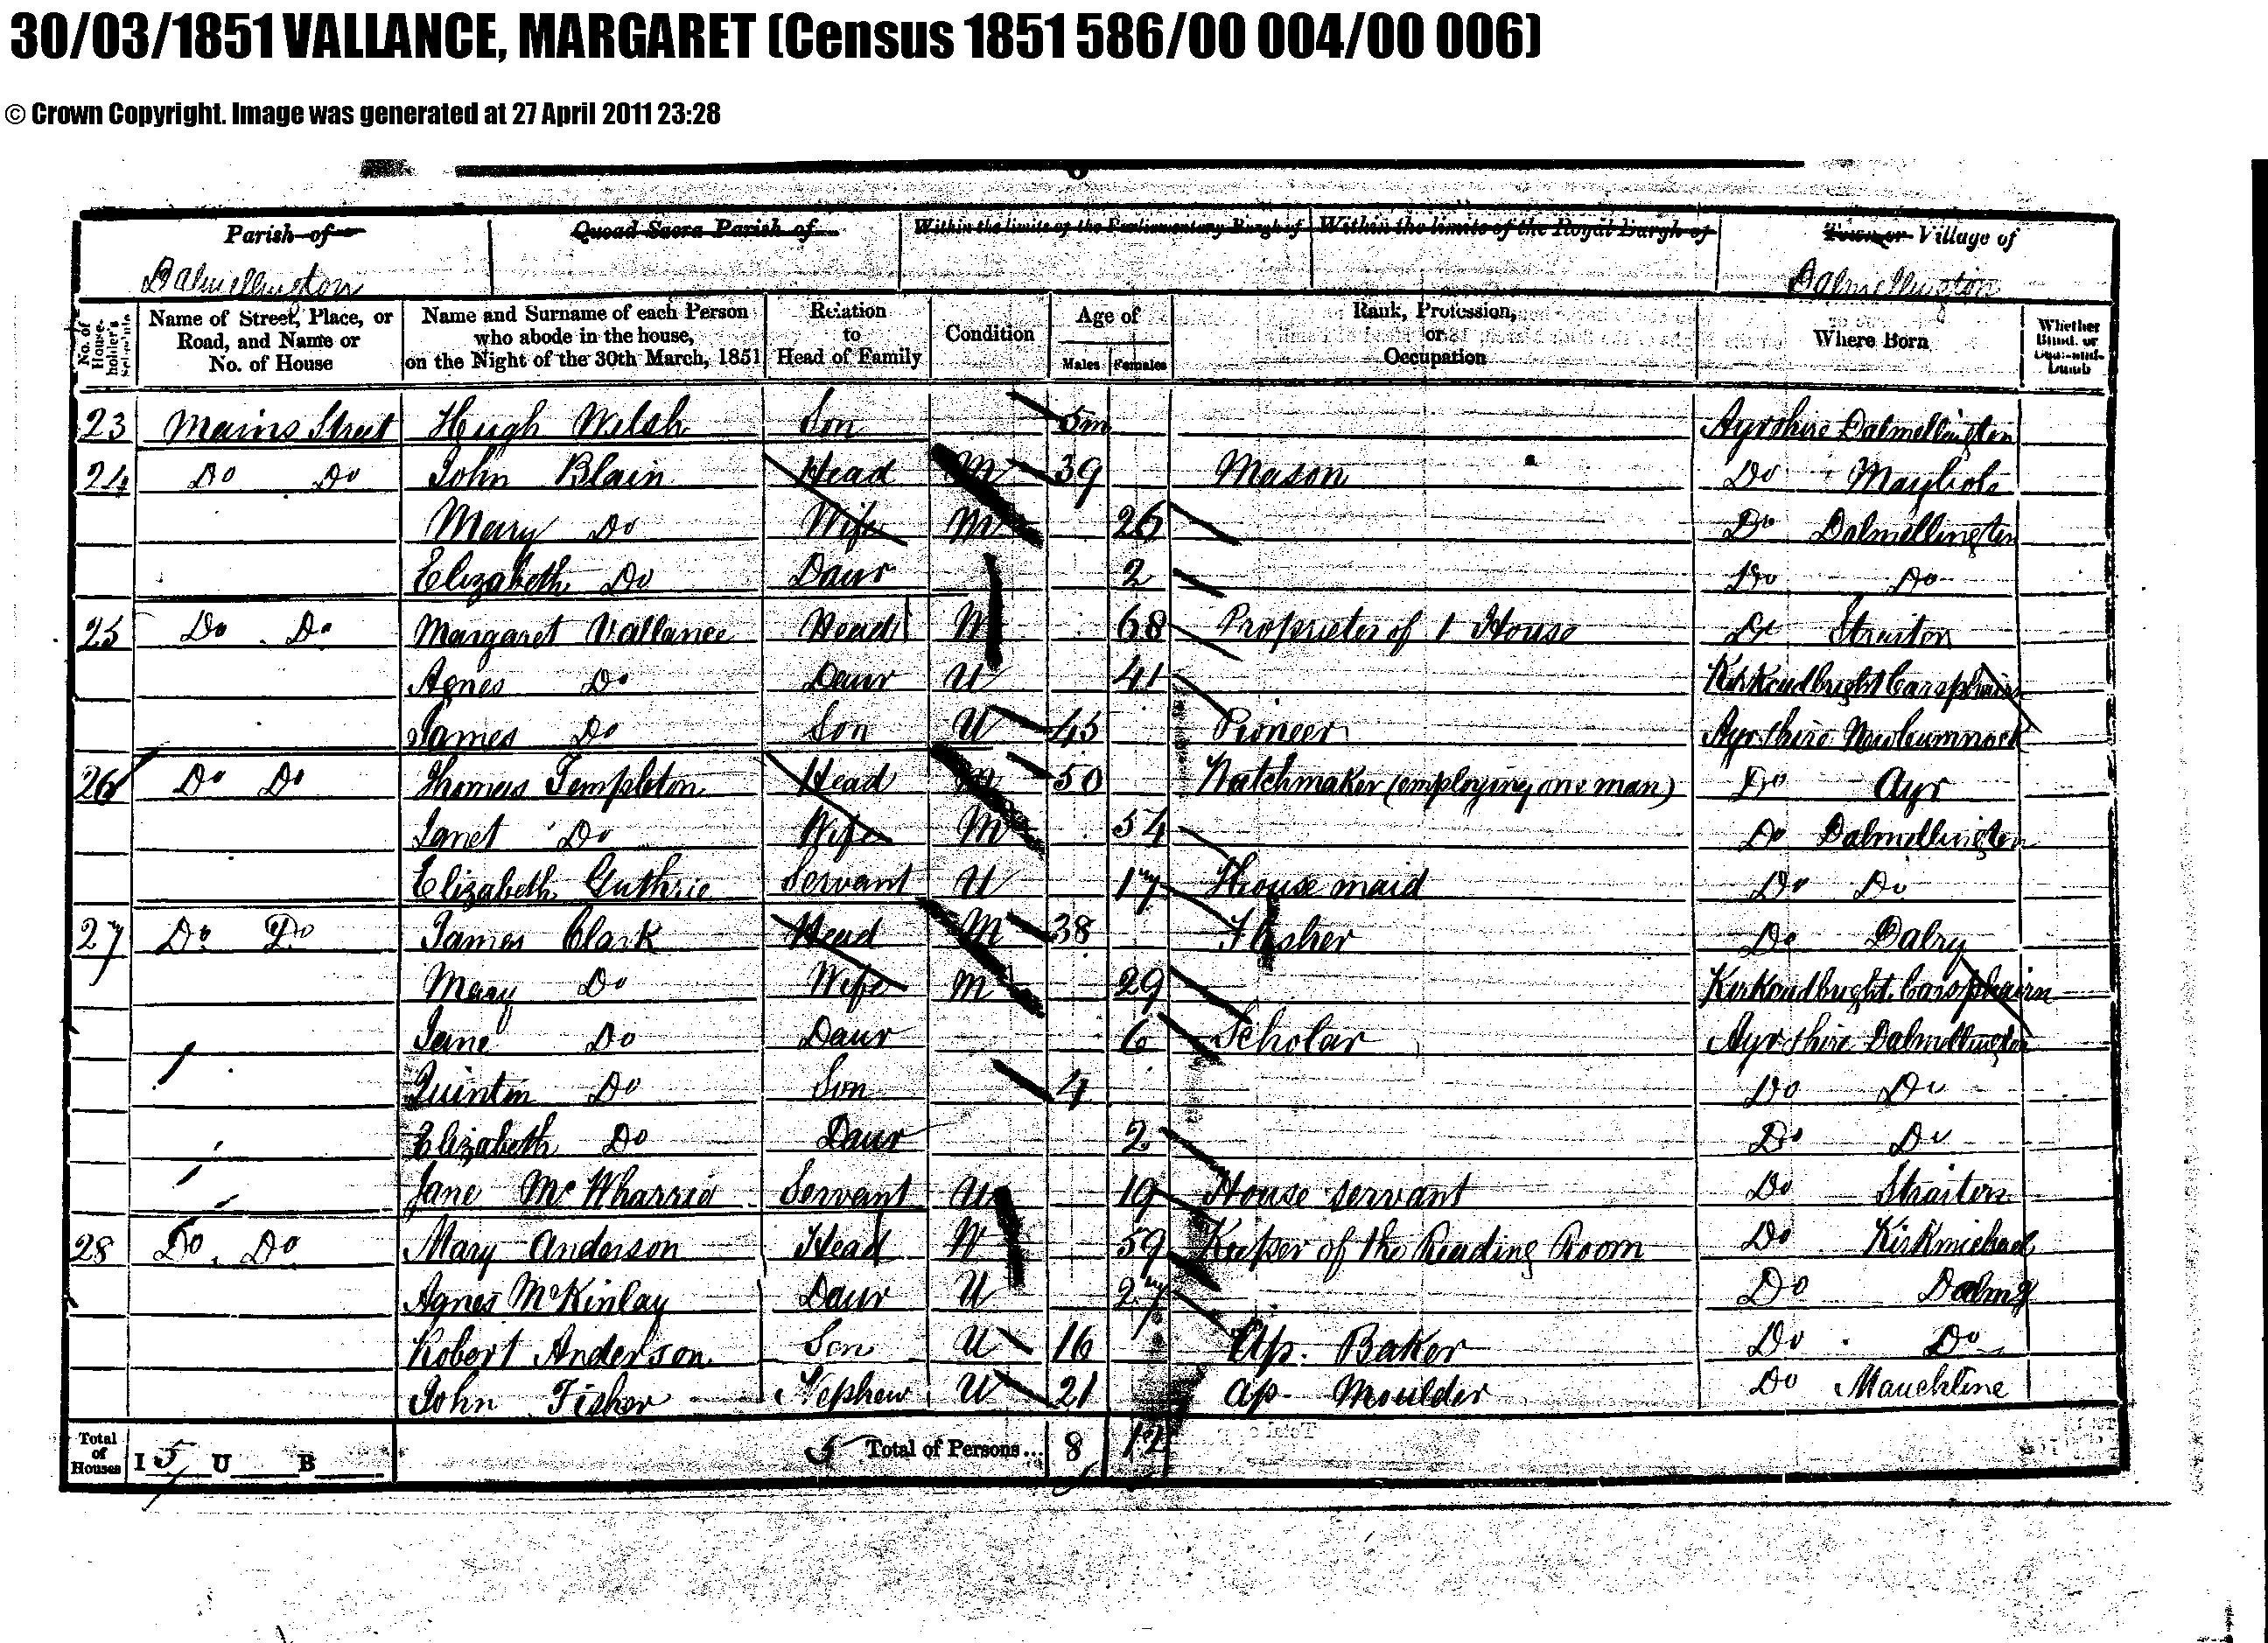 30/03/1851 VALLANCE, MARGARET (Census 1851 586/00 004/00 006)
© Crown Copyright. Image was generated at 27 April 2011 23:28
Parish of Quoad Sacra Parish of Within the limits of the Parliamentary Burgh of Within the limits of the Royal Burgh of Town or Village of
Dalmellington Dalmellington
No. of Householder's Schedule Name of Street, Place, or Road, and Name or No. of House Name and Surname of each Person who abode in the house, on the Night of the 30th March, 1851 Relation to Head of Family Condition Age of Males Females Rank, Profession, or Occupation Where Born Whether Blind, or Deaf-and-Dumb
23 Mains Street Hugh Welsh Son 5m Ayrshire Dalmellington
24 Do Do John Blain Head M 39 Mason Do Maybole
Mary Do Wife M 26 Do Dalmellington
Elizabeth Do Daur 2 Do Do
25 Do Do Margaret Vallance Head M 68 Proprieter of 1 House Do Straiton
Agnes Do Daur U 41 Kirkcudbright Carsphairn
James Do Son U 45 Pioneer Ayrshire New Cumnock
26 Do Do Thomas Templeton Head M 50 Watchmaker (employing one man) Do Ayr
Janet Do Wife M 54 Do Dalmellington
Elizabeth Guthrie Servant U 17 House maid Do Do
27 Do Do James Clark Head M 38 Flesher Do Dalry
Mary Do Wife M 29 Kirkcudbright Carsphairn
Jane Do Daur 6 Scholar Ayrshire Dalmellington
Quintin Do Son 4 Do Do
Elizabeth Do Daur 2 Do Do
Jane McWharrie Servant U 19 House servant Do Straiton
28 Do Do Mary Anderson Head W 59 Keeper of the Reading Room Do Kirkmichael
Agnes McKinlay Daur U 27 Do
Robert Anderson Son U 16 Ap. Baker Do Do
John Fisher Nephew U 21 Ap. Moulder Do Mauchline
Total of Houses I 5 U B 5 Total of Persons... 8 12